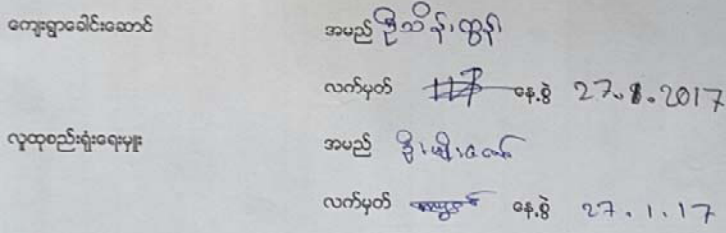 ကျေးရွာခေါင်းဆောင် အမည် ဦးသိန်းထွန်း
လက်မှတ် နေ့စွဲ 27.8.2017
လူထုစည်းရုံးရေးမှူး အမည် ဦး
လက်မှတ် နေ့စွဲ 27.1.17